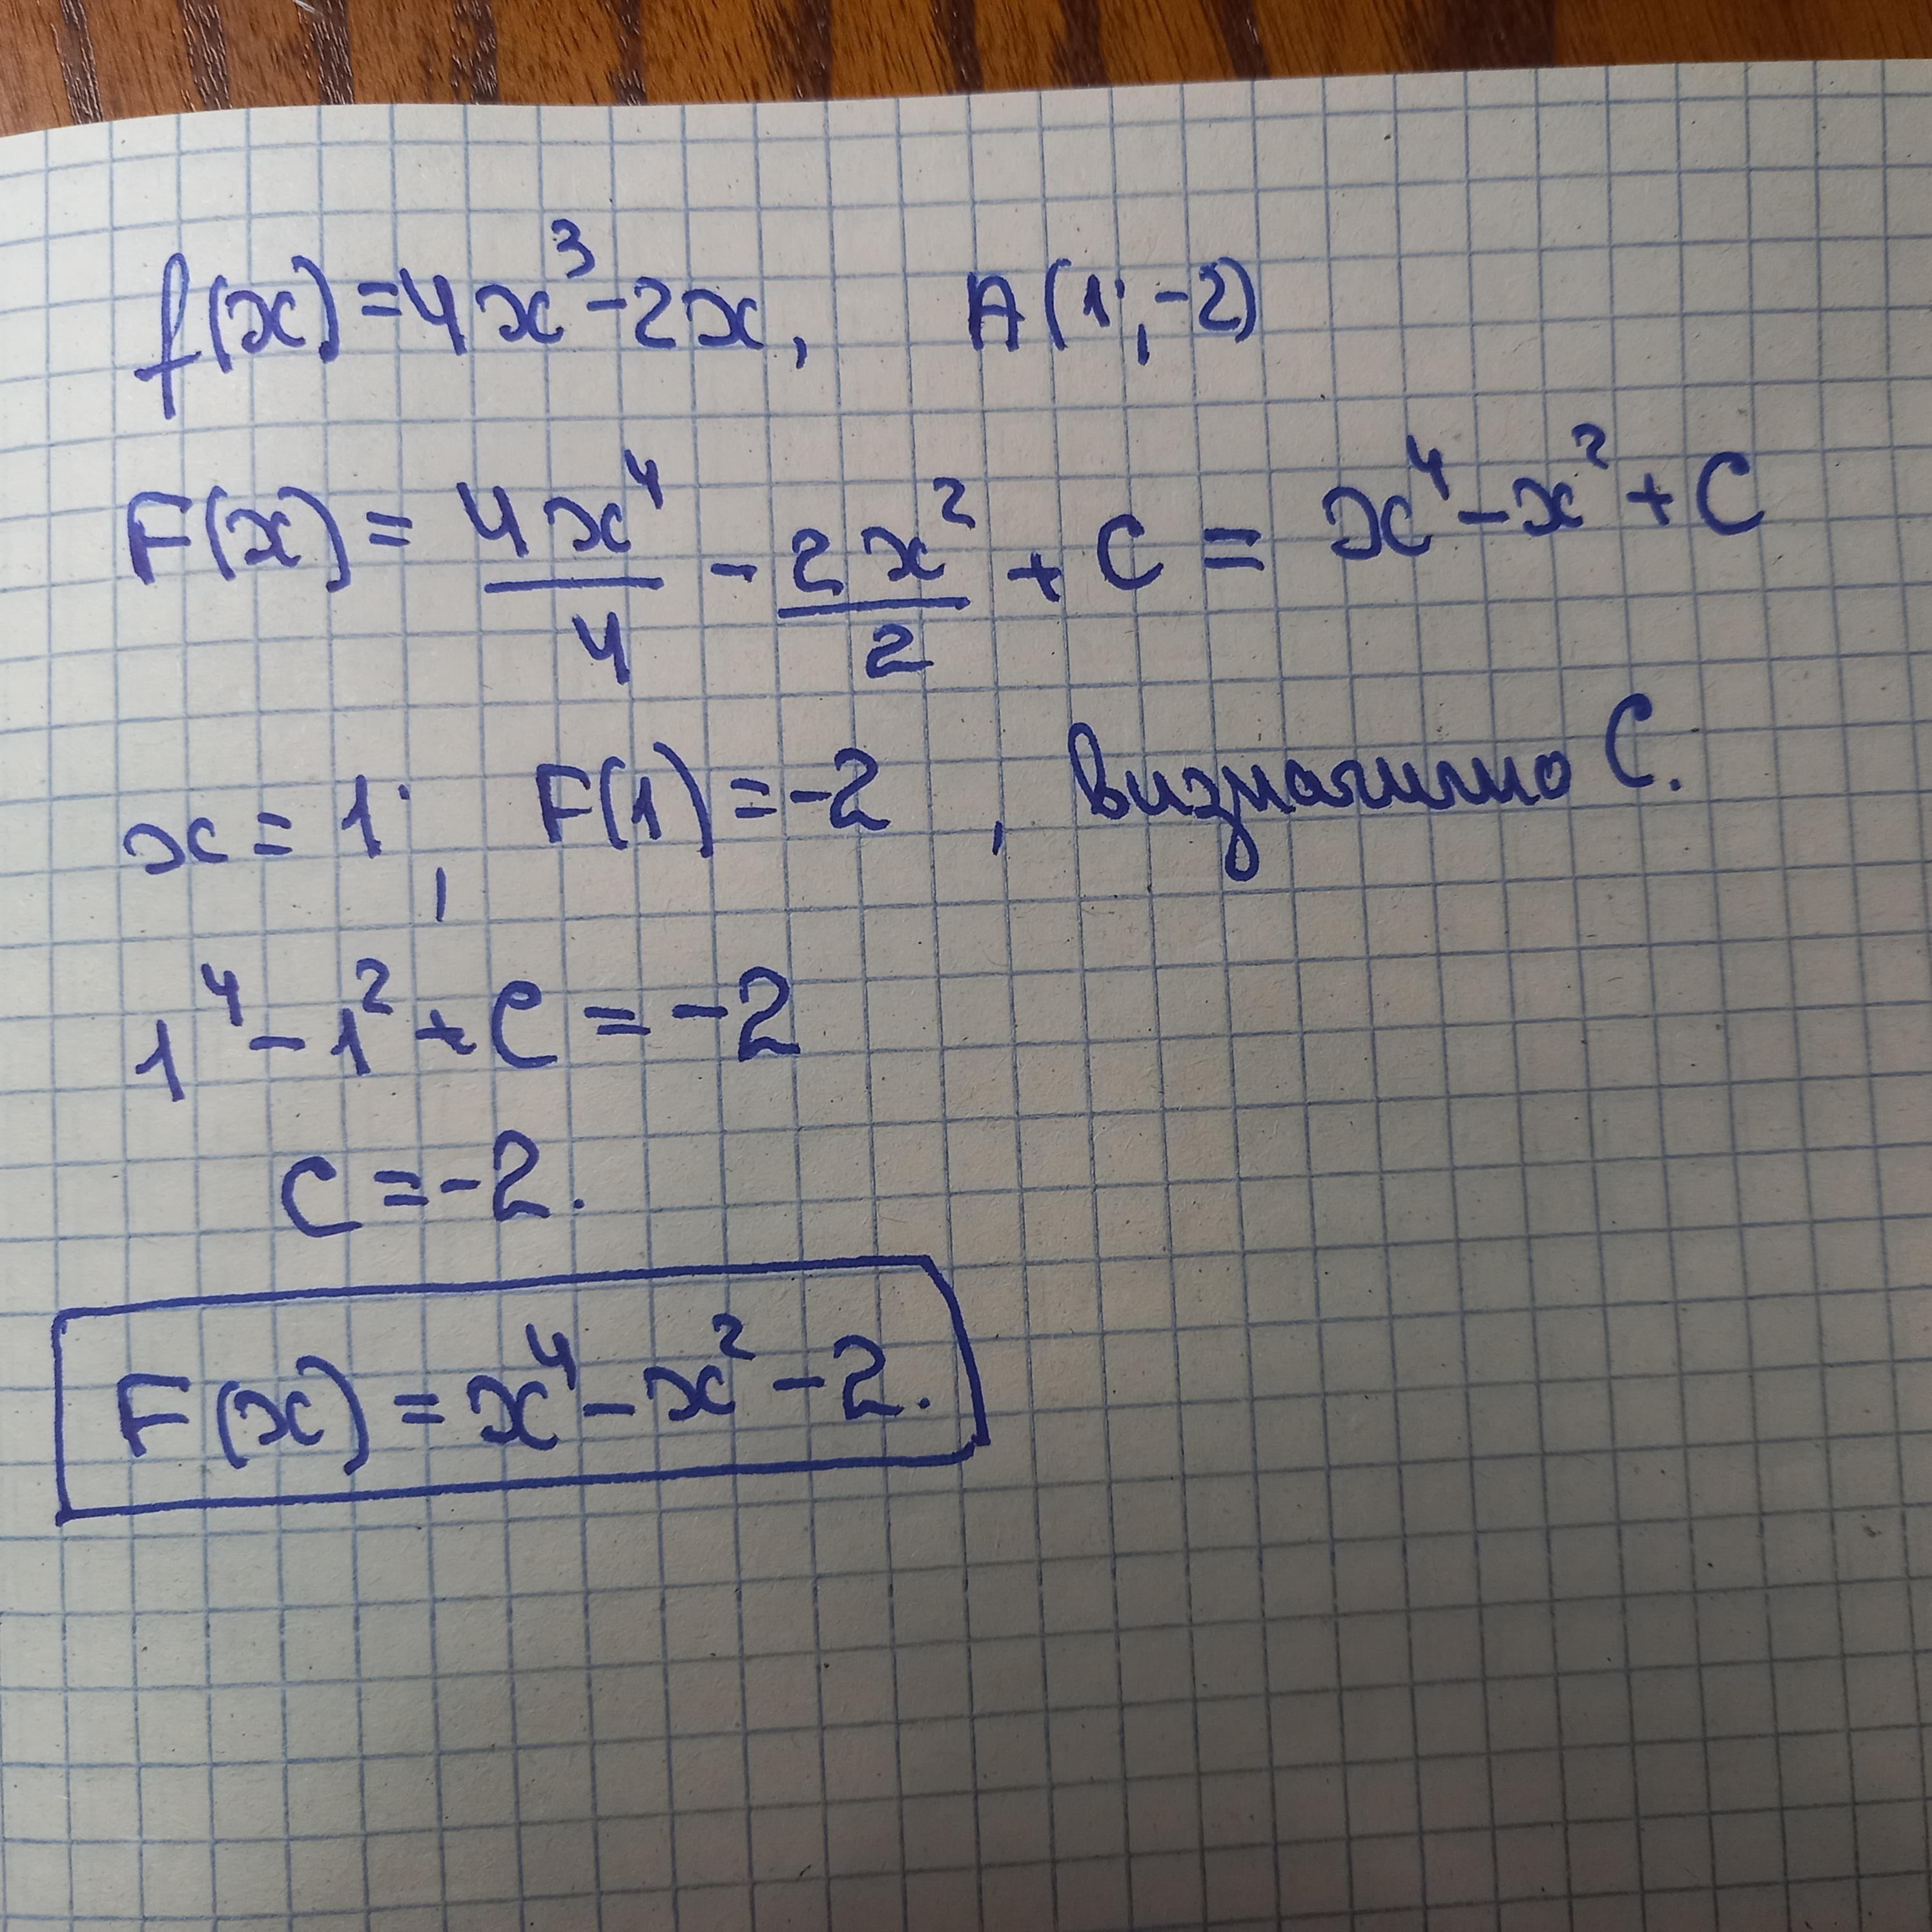 f(x)=4x³-2x, A(1;-2)
F(x) = 4x⁴/4 - 2x²/2 + C = x⁴-x²+C
x = 1; F(1)=-2, визначимо C.
1⁴-1²+C=-2
C=-2.
F(x)=x⁴-x²-2.